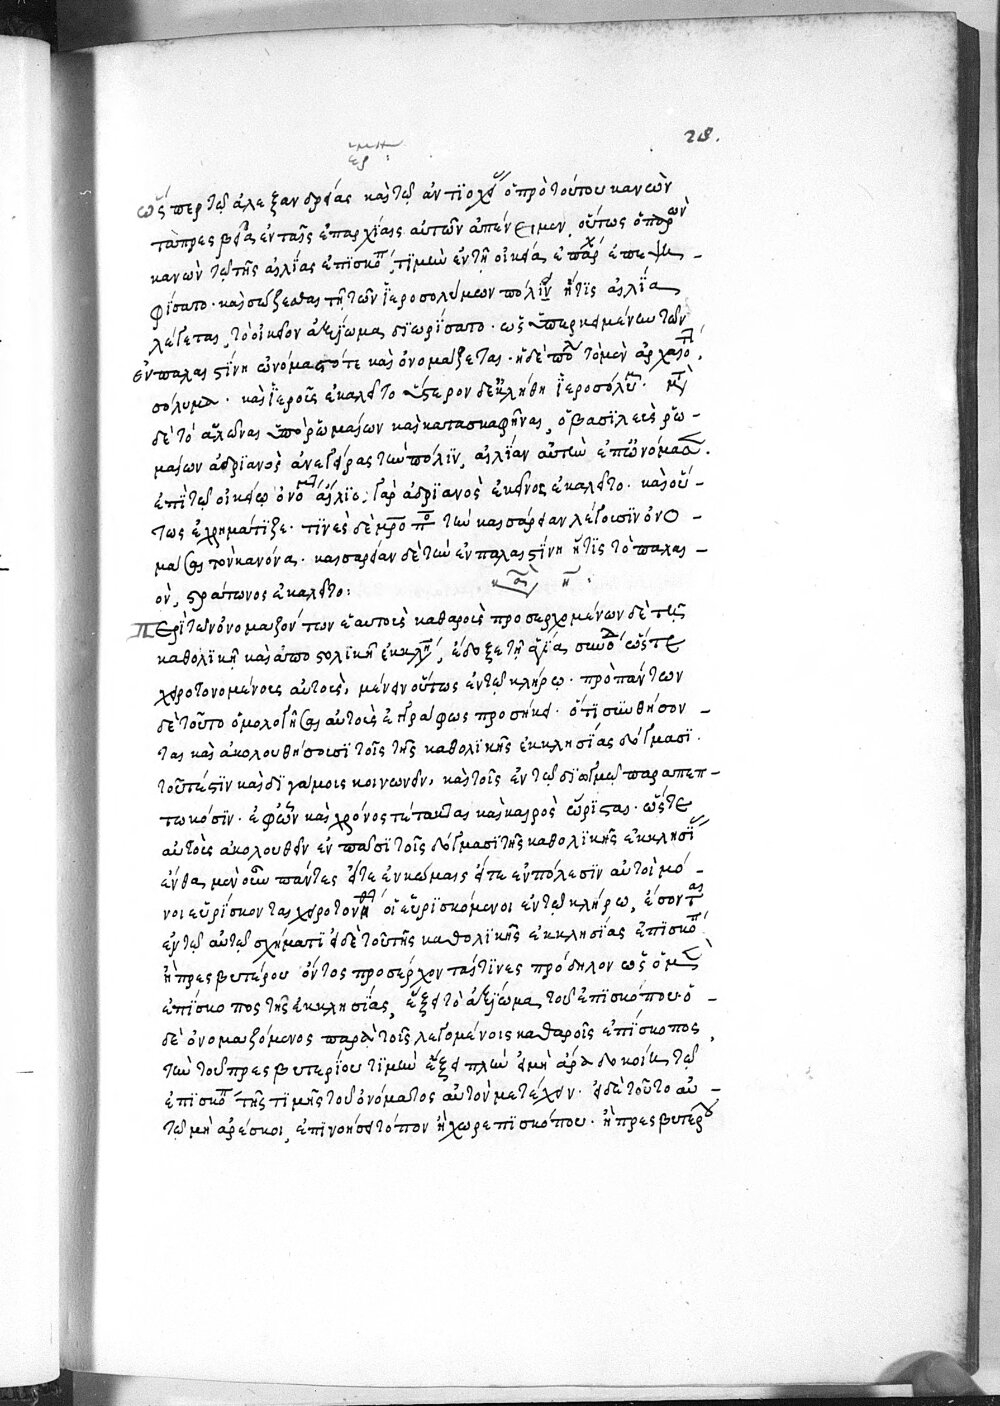 28.
ὥσπερ τῷ ἀλεξανδρείας καὶ τῷ ἀντιοχεί ὁ πρὸ τούτου κανὼν
τὰ πρεσβεῖα ἐν ταῖς ἐπαρχίαις αὐτῶν ἀπένειμεν, οὕτως ὁ παρὼν
κανὼν τῷ τῆς αἰλίας ἐπισκόπ τιμὴν ἐν τῇ οἰκείᾳ ἐπαρχ ἐπεψη-
φίσατο· καὶ σώζεσθαι τῇ τῶν ἱεροσολύμων πόλει ἥτις αἰλία
λέγεται, τὸ οἰκεῖον ἀξίωμα διωρίσατο· ὡς ὑπερκειμένω τῶν
ἐν παλαιστίνη ὠνόμασται τότε καὶ ὀνομάζεται· ἡ δὲ πο τὸ μὲν ἀρχαιό,
σόλυμα· καὶ ἱεροῖς ἐκαλεῖτο ὕστερον δὲ ἐκλήθη ἱεροσόλυμ· μτ
δὲ τὸ ἁλῶναι ὑπὸ ῥωμαίων καὶ κατασκαφῆναι, ὁ βασιλεὺς ῥω-
μαίων ἀδριανὸς ἀνεγείρας τὴν πόλιν, αἰλίαν αὐτὴν ἐπωνόμασ.
ἐπὶ τῷ οἰκείῳ ὀνόματ αἴλιος γὰρ ἀδριανὸς ἐκεῖνος ἐκαλεῖτο· καὶ οὕ-
τως ἐχρημάτιζε· τινὲς δὲ μρο πο τὴν καισάρειαν λέγουσιν ὀνο-
μάσαι τὸν κανόνα· καισαρείαν δὲ τὴν ἐν παλαιστίνη ἥτις τὸ παλαι-
όν, στράτωνος ἐκαλεῖτο:
κα η:
Περὶ τῶν ὀνομαζόντων ἑαυτοὺς καθαροὺς προσερχομένων δὲ τῇ
καθολικῇ καὶ ἀποστολικῇ ἐκκλη, ἔδοξε τῇ ἁγίᾳ συνόδ ὥστε
χειροτονουμένους αὐτοὺς, μένειν οὕτως ἐν τῷ κλήρῳ· πρὸ πάντων
δὲ τοῦτο ὁμολογῆσαι αὐτοὺς ἐγγράφως προσήκει· ὅτι συνθήσον-
ται καὶ ἀκολουθήσουσι τοῖς τῆς καθολικῆς ἐκκλησίας δόγμασι·
τοῦτέστιν καὶ διγάμοις κοινωνεῖν, καὶ τοῖς ἐν τῷ διωγμῷ παραπεπ-
τωκόσιν· ἐφ' ὧν καὶ χρόνος τέτακται καὶ καιρὸς ὥρισται· ὥστε
αὐτοὺς ἀκολουθεῖν ἐν πᾶσι τοῖς δόγμασι τῆς καθολικῆς ἐκκλησί
ἔνθα μὲν οὖν πάντες εἴτε ἐν κώμαις εἴτε ἐν πόλεσιν αὐτοὶ μό-
νοι εὑρίσκονται χειροτονηθ οἱ εὑρισκόμενοι ἐν τῷ κλήρῳ, ἔσονται
ἐν τῷ αὐτῷ σχήματι εἰ δὲ τοῦ τῆς καθολικῆς ἐκκλησίας ἐπισκόπ
ἢ πρεσβυτέρου ὄντος προσέρχονταί τινες πρόδηλον ὡς ὁ μὲν
ἐπίσκοπος τῆς ἐκκλησίας, ἕξει τὸ ἀξίωμα τοῦ ἐπισκόπου· ὁ-
δὲ ὀνομαζόμενος παρὰ τοῖς λεγομένοις καθαροῖς ἐπίσκοπος,
τὴν τοῦ πρεσβυτερίου τιμὴν ἕξει πλὴν εἰ μὴ ἄρα δοκοίη τῷ
ἐπισκόπ τῆς τιμῆς τοῦ ὀνόματος αὐτὸν μετέχειν· εἰ δὲ τοῦτο αὐ-
τῷ μὴ ἀρέσκοι, ἐπινοήσει τόπον ἢ χωρεπισκόπου· ἢ πρεσβυτέρου